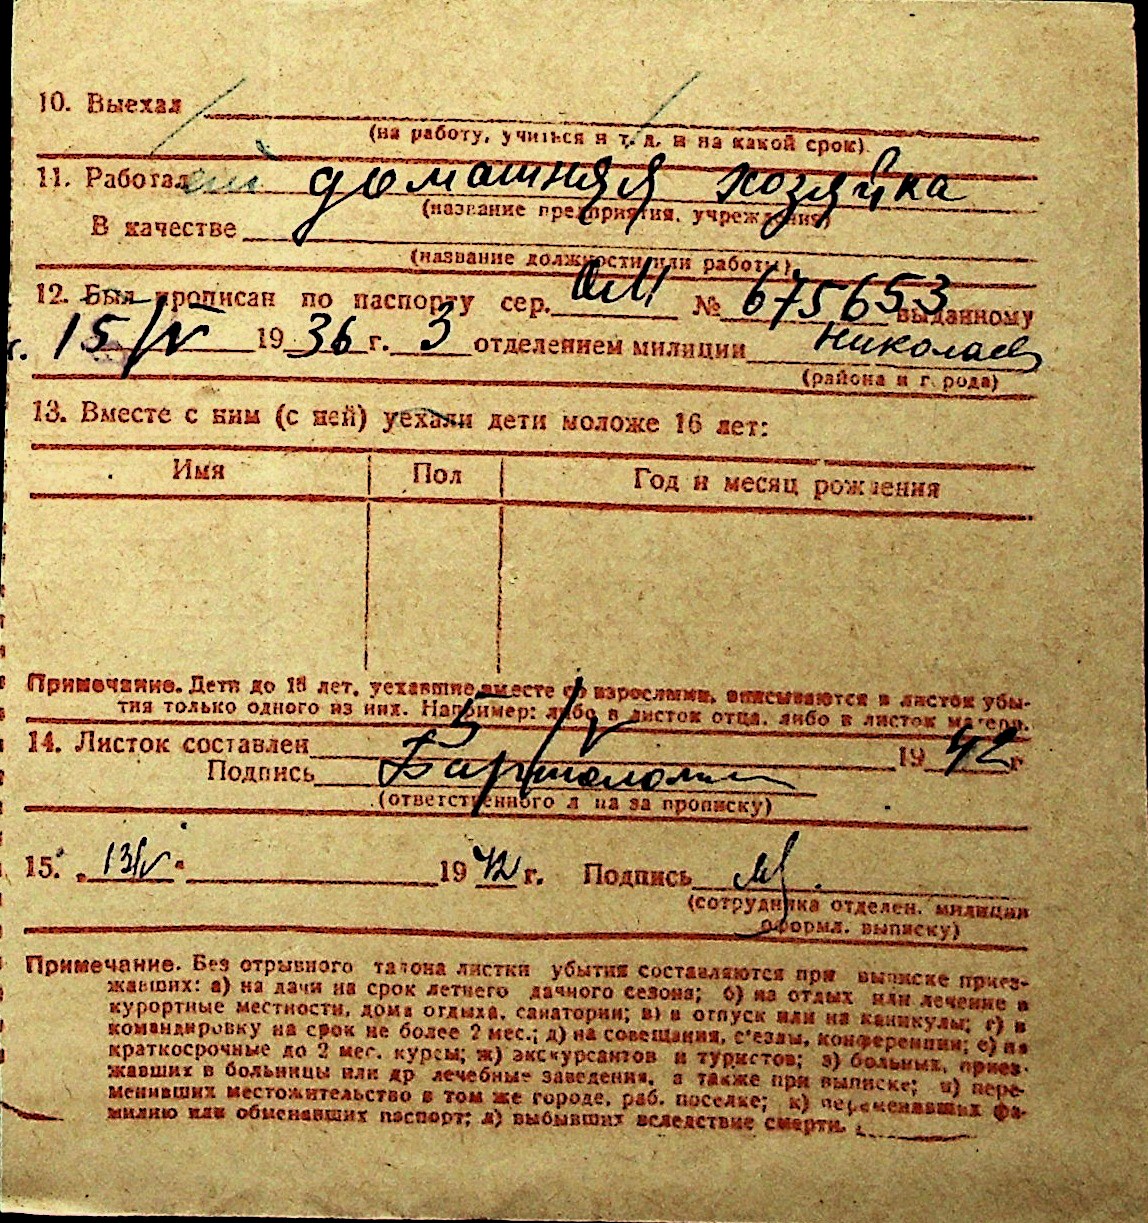 10. Выехал
(на работу, учиться и т. д. и на какой срок)
11. Работал домашняя хозяйка
(название предприятия, учреждения)
В качестве
(название должности или работы)
12. Был прописан по паспорту сер. № 675653 выданному
г. 15/V 1936 г. 3 отделением милиции Николаев
(района и города)
13. Вместе с ним (с ней) уехали дети моложе 16 лет:
Имя Пол Год и месяц рождения
Примечание. Дети до 16 лет, уехавшие вместе со взрослыми, вписываются в листок убы-
тия только одного из них. Например: либо в листок отца, либо в листок матери.
14. Листок составлен 5/V 1942 г
Подпись
(ответственного лица за прописку)
15. „13/V" 1942 г. Подпись
(сотрудника отделен. милиции
оформл. выписку)
Примечание. Без отрывного талона листки убытия составляются при выписке приез-
жавших: а) на дачи на срок летнего дачного сезона; б) на отдых или лечение в
курортные местности, дома отдыха, санатории; в) в отпуск или на каникулы; г) в
командировку на срок не более 2 мес.; д) на совещания, с'езды, конференции; е) на
краткосрочные до 2 мес. курсы; ж) экскурсантов и туристов; з) больных, приез-
жавших в больницы или др лечебные заведения, а также при выписке; и) пере-
менивших местожительство в том же городе, раб. поселке; к) переменивших фа-
милию или обменавших паспорт; л) выбывших вследствие смерти.